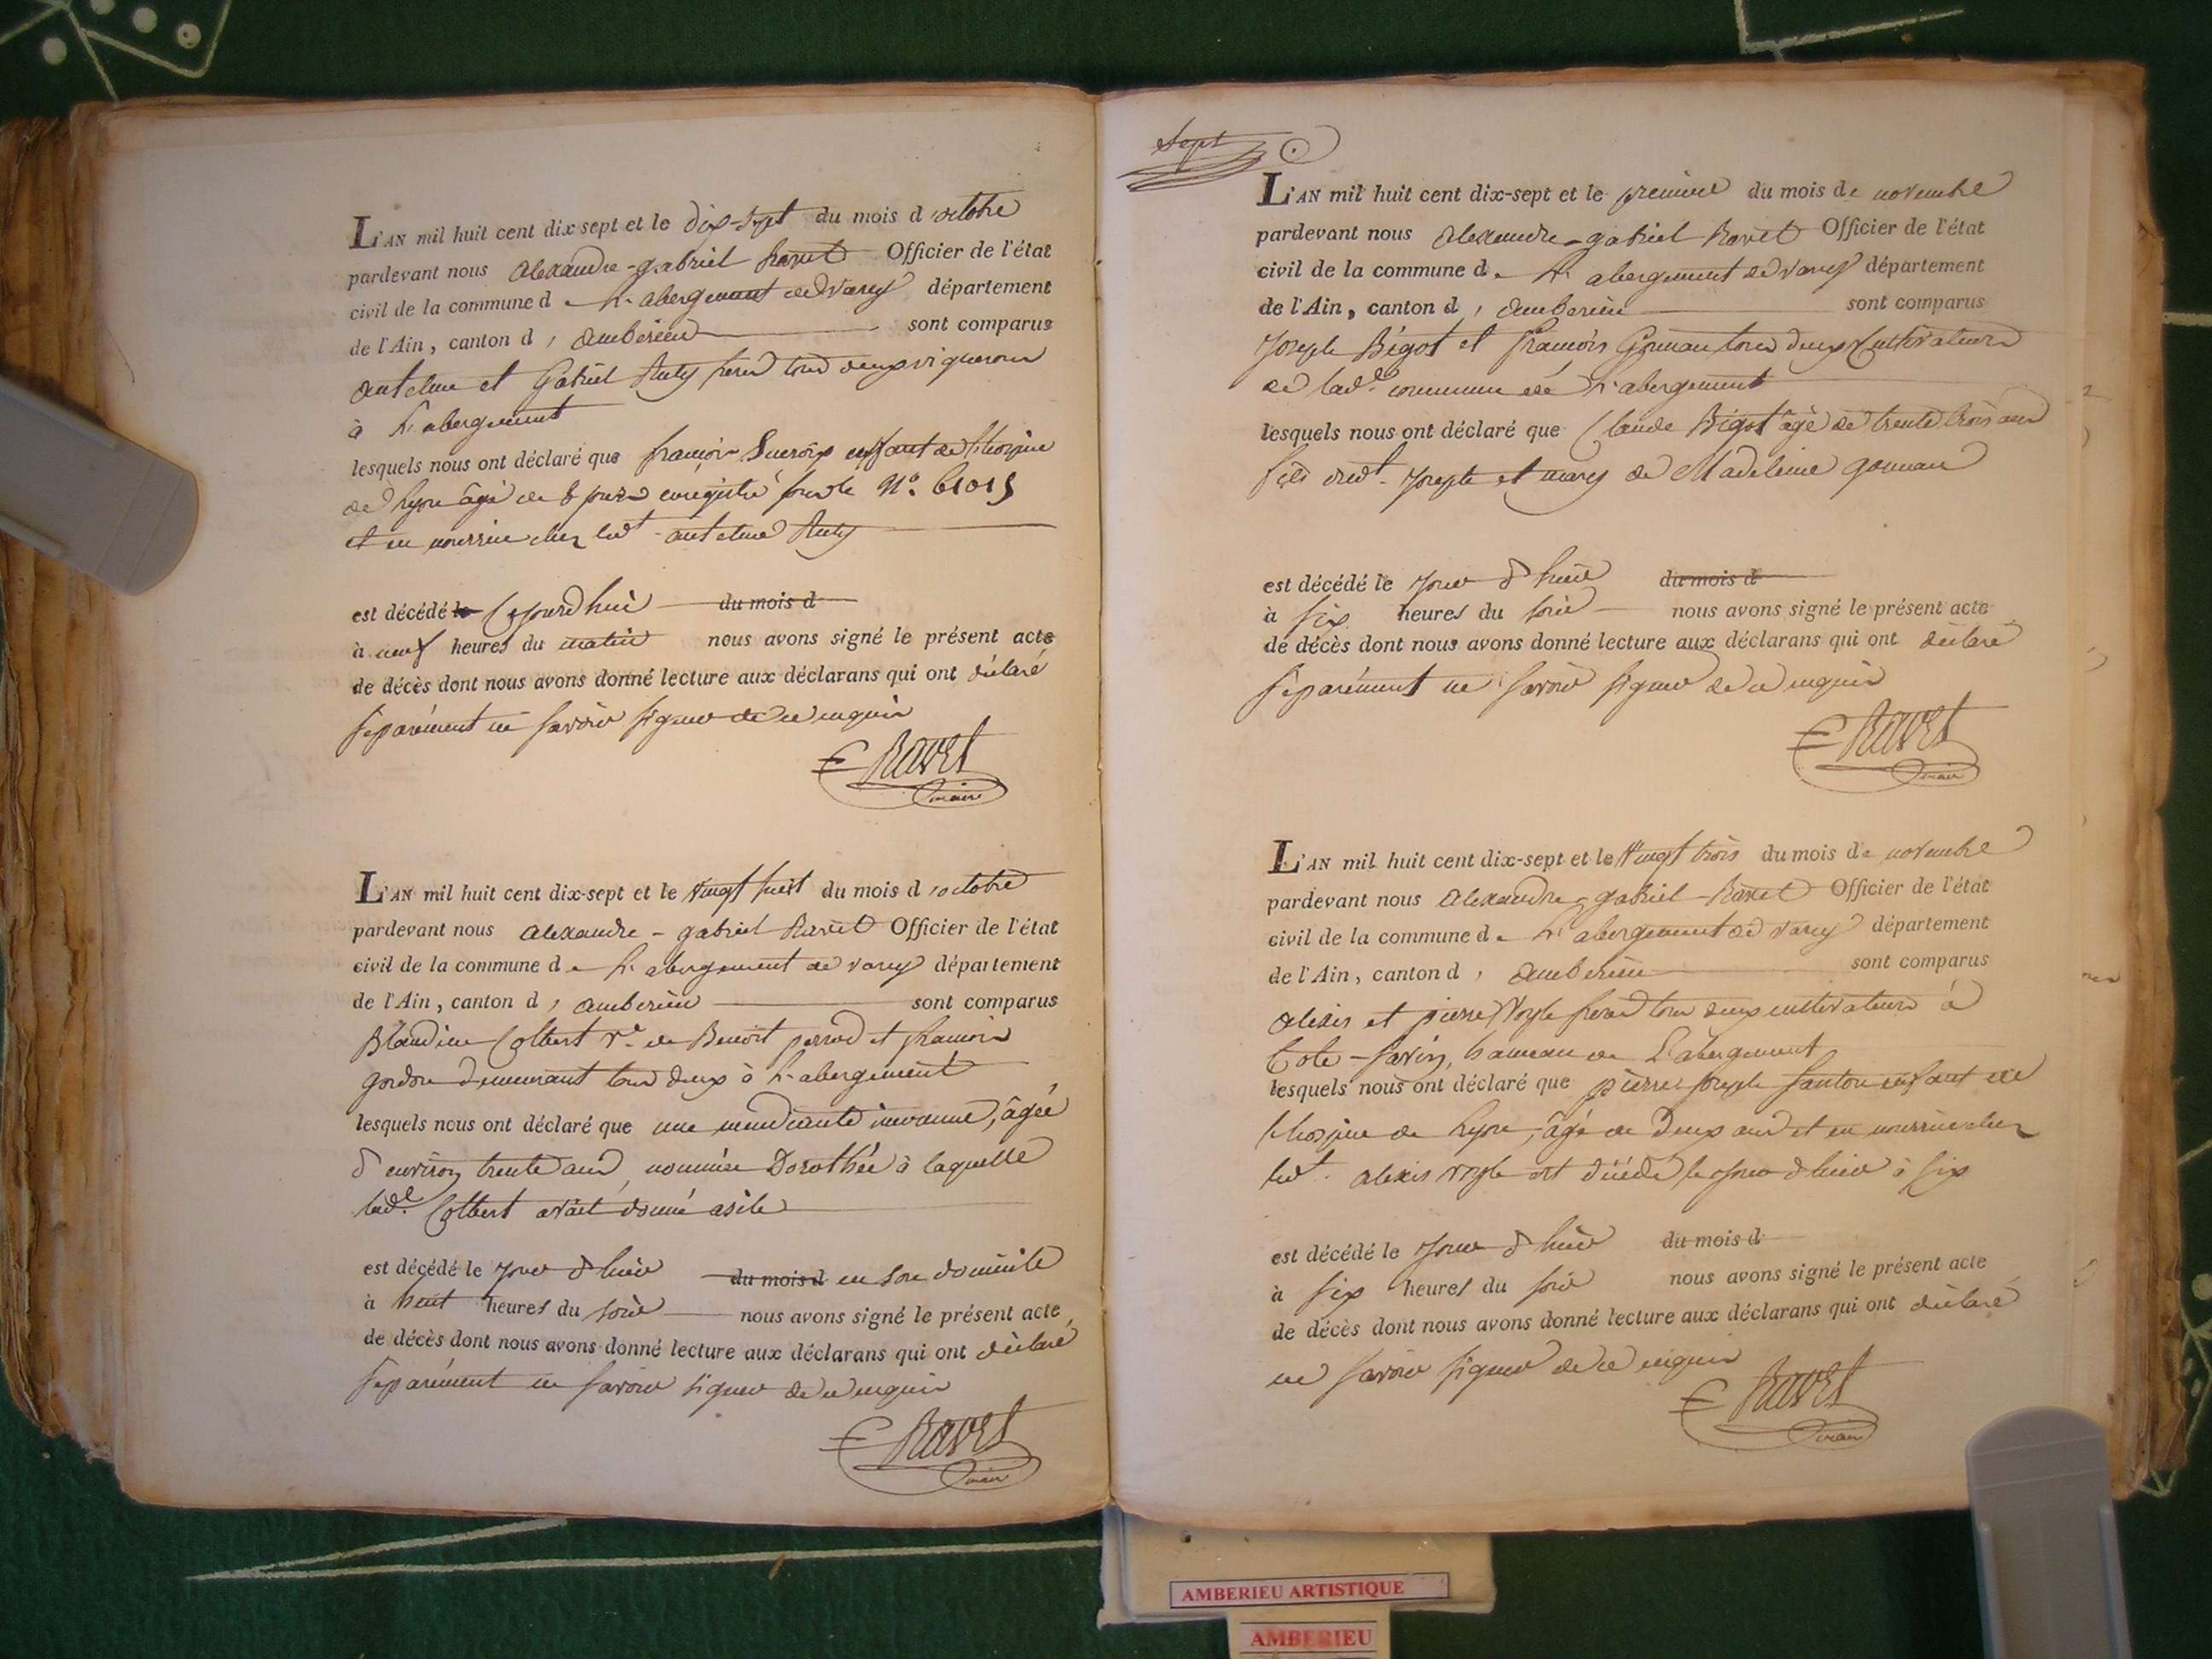 L'AN mil huit cent dix-sept et le dix-sept du mois d'octobre
pardevant nous alexandre-gabriel Ravet Officier de l'état
civil de la commune de L'abergement de varey département
de l'Ain, canton d'amberieu sont comparus
antelme et Gabriel freres tous deux vignerons
à L'abergement
lesquels nous ont déclaré que françois enfant de l'hospice
de Lyon âgé de 8 jours enregistré sous le N°. 61015
et en nourrice chez led.t antelme
est décédé le cejourd'hui du mois d
à neuf heures du matin nous avons signé le présent acte
de décès dont nous avons donné lecture aux déclarans qui ont déclaré
séparément ne savoir signer de ce enquis
Ravet
maire
L'AN mil huit cent dix-sept et le vingt huit du mois d'octobre
pardevant nous alexandre-gabriel Ravet Officier de l'état
civil de la commune de L'abergement de varey département
de l'Ain, canton d'amberieu sont comparus
Blandine Colbert v.e de Benoit perrod et françois
gordon demeurant tous deux à L'abergement
lesquels nous ont déclaré que une mendiante inconnue, âgée
d'environ trente ans, nommée Dorothée à laquelle
lad.e Colbert avait donné asile
est décédé le jour d'hier du mois d en son domicile
à huit heures du soir nous avons signé le présent acte
de décès dont nous avons donné lecture aux déclarans qui ont déclaré
séparément ne savoir signer de ce enquis
Ravet
maire
Sept
L'AN mil huit cent dix-sept et le premier du mois de novembre
pardevant nous alexandre-gabriel Ravet Officier de l'état
civil de la commune de L'abergement de varey département
de l'Ain, canton d'amberieu sont comparus
Joseph Bigot et françois tous deux Cultivateurs
de lad.e commune de L'abergement
lesquels nous ont déclaré que Claude Bigot âgé de trente trois ans
fils dud.t Joseph et mary de Madeleine
est décédé le jour d'hier du mois d
à six heures du soir nous avons signé le présent acte
de décès dont nous avons donné lecture aux déclarans qui ont déclaré
séparément ne savoir signer de ce enquis
Ravet
maire
L'AN mil huit cent dix-sept et le vingt trois du mois de novembre
pardevant nous alexandre-gabriel Ravet Officier de l'état
civil de la commune de L'abergement de varey département
de l'Ain, canton d'amberieu sont comparus
alexis et pierre freres tous deux cultivateurs à
Cote-savin, hameau de L'abergement
lesquels nous ont déclaré que pierre joseph enfant de
l'hospice de Lyon, âgé de deux ans et en nourrice chez
led.t alexis est décédé le jour d'hier à six
est décédé le jour d'hier du mois d
à six heures du soir nous avons signé le présent acte
de décès dont nous avons donné lecture aux déclarans qui ont déclaré
ne savoir signer de ce enquis
Ravet
maire
AMBERIEU ARTISTIQUE
AMBERIEU